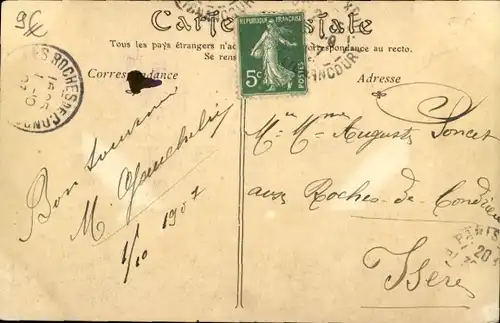 95c
Carte Postale
Tous les pays étrangers n'ac correspondance au recto.
Se rens
Correspondance
Adresse
5c
POSTES
LES ROCHES DE COND
Bon souvenir
M.
1/10 1907
Mr et Mme Auguste Poncet
aux Roches-de-Condrieu
Isère
PARIS
20